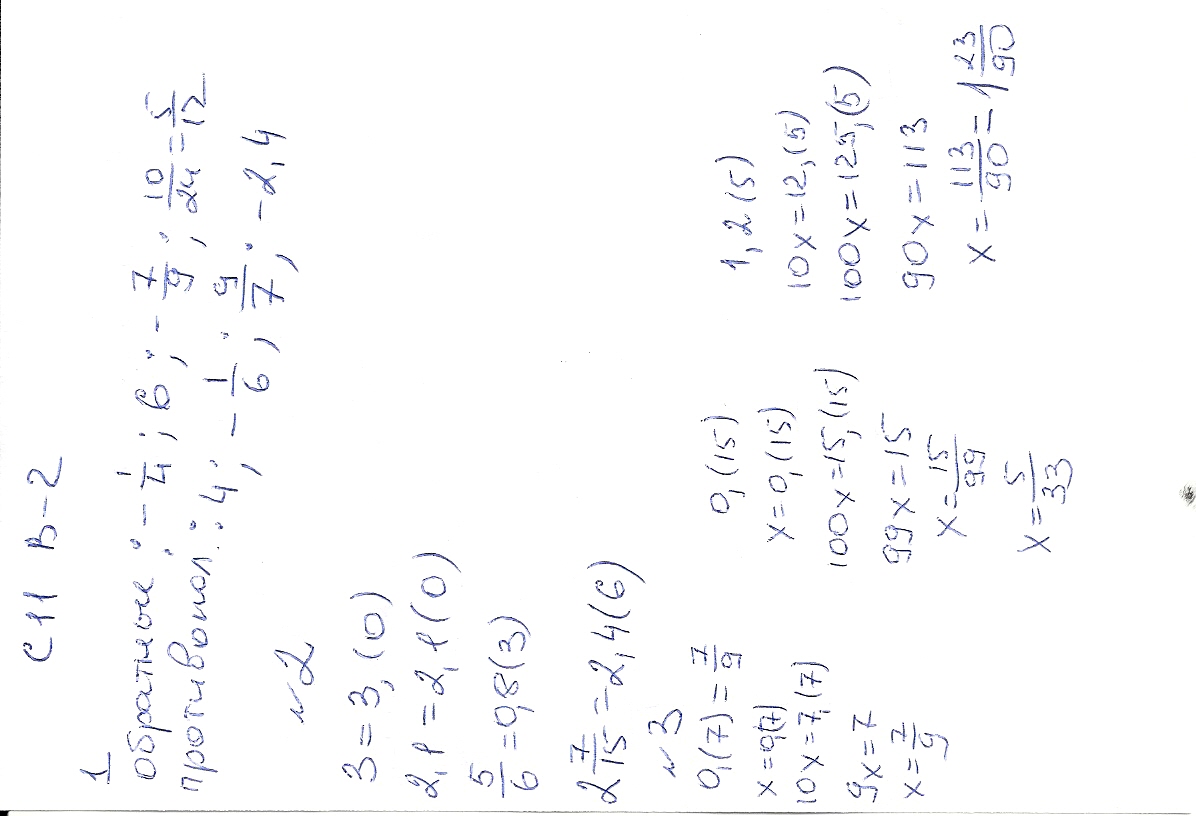 С11 В-2
1
обратные: -1/4; 6; -7/9; 10/24 = 5/12
противопол.: 4; -1/6; 9/7; -2,4
№2
3 = 3,(0)
2,1 = 2,1(0)
5/6 = 0,8(3)
2 7/15 = 2,4(6)
№3
0,(7) = 7/9
x = 0,(7)
10x = 7,(7)
9x = 7
x = 7/9
0,(15)
x = 0,(15)
100x = 15,(15)
99x = 15
x = 15/99
x = 5/33
1,2(5)
10x = 12,(5)
100x = 125,(5)
90x = 113
x = 113/90 = 1 23/90